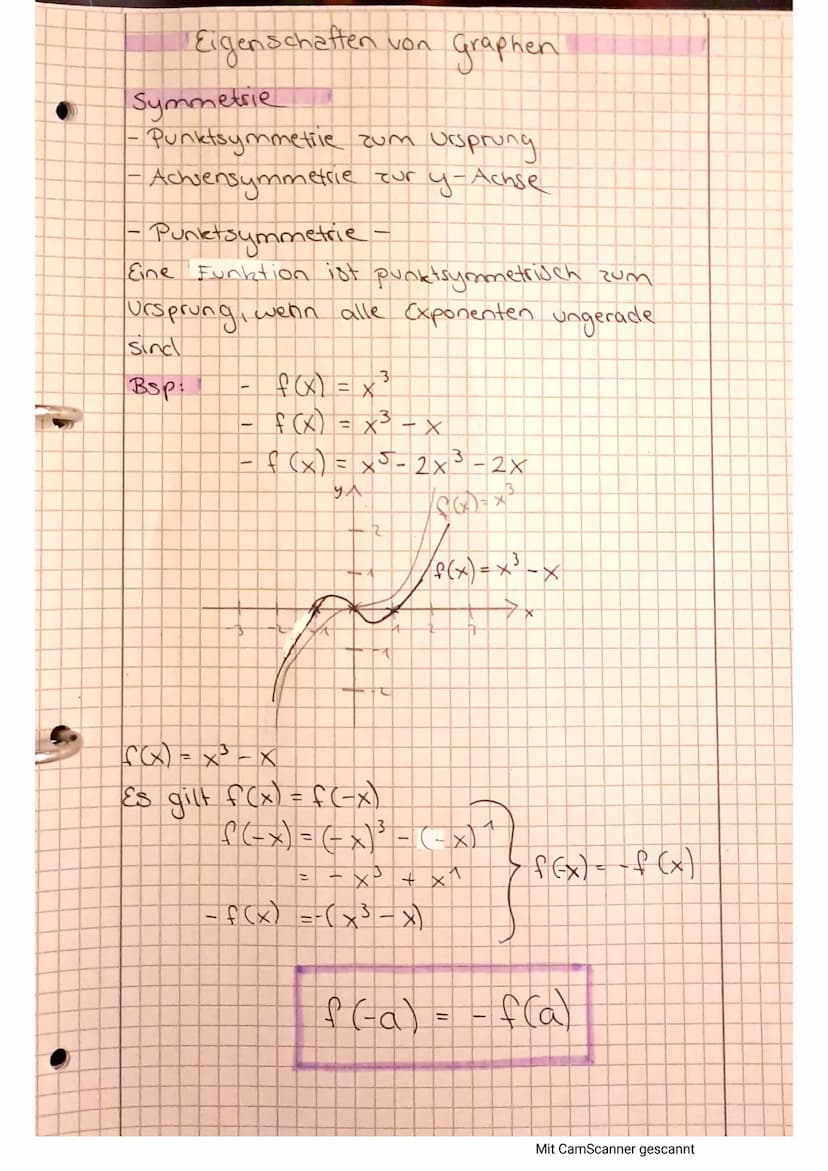 Eigenschaften von Graphen
Symmetrie
- Punktsymmetrie zum Ursprung
- Achsensymmetrie zur y-Achse
- Punktsymmetrie -
Eine Funktion ist punktsymmetrisch zum
Ursprung, wenn alle Exponenten ungerade
sind
Bsp: - f(x) = x³
- f(x) = x³ - x
- f(x) = x⁵ - 2x³ - 2x
y
f(x) = x³
2
1
f(x) = x³ - x
x
-3 -2 -1 1 2 3
-1
-2
f(x) = x³ - x
Es gilt f(x) = f(-x)
f(-x) = (-x)³ - (-x)¹
= -x³ + x¹
f(-x) = -f(x)
-f(x) = -(x³ - x)
f(-a) = - f(a)
Mit CamScanner gescannt